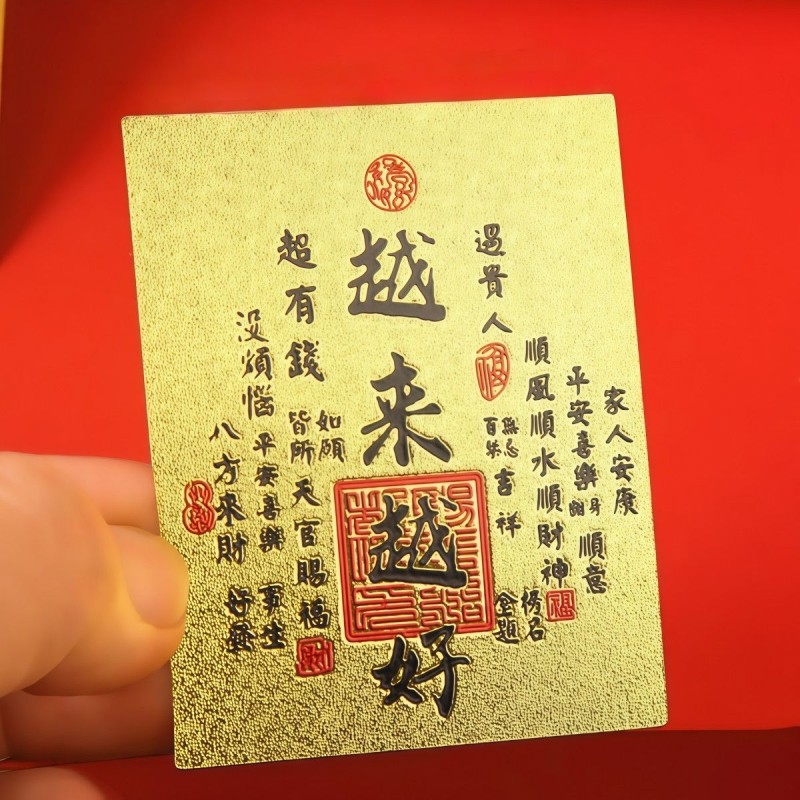 家人安康
平安喜樂
順意
順風順水順財神
遇貴人
吉祥
金榜
題名
越来越好
超有錢
如願
皆所
天官賜福
没煩惱
平安喜樂
八方來財
福
財